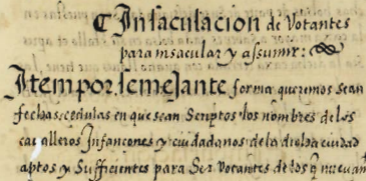 ¶ Insaculacion de Votantes
para insacular y assumir:
Item por semejante forma queremos sean
fechas cedulas en que sean Scriptos los nombres de los
caualleros Infançones y ciudadanos de la dicha ciudad
aptos y Sufficientes para Ser Votantes de los q̃